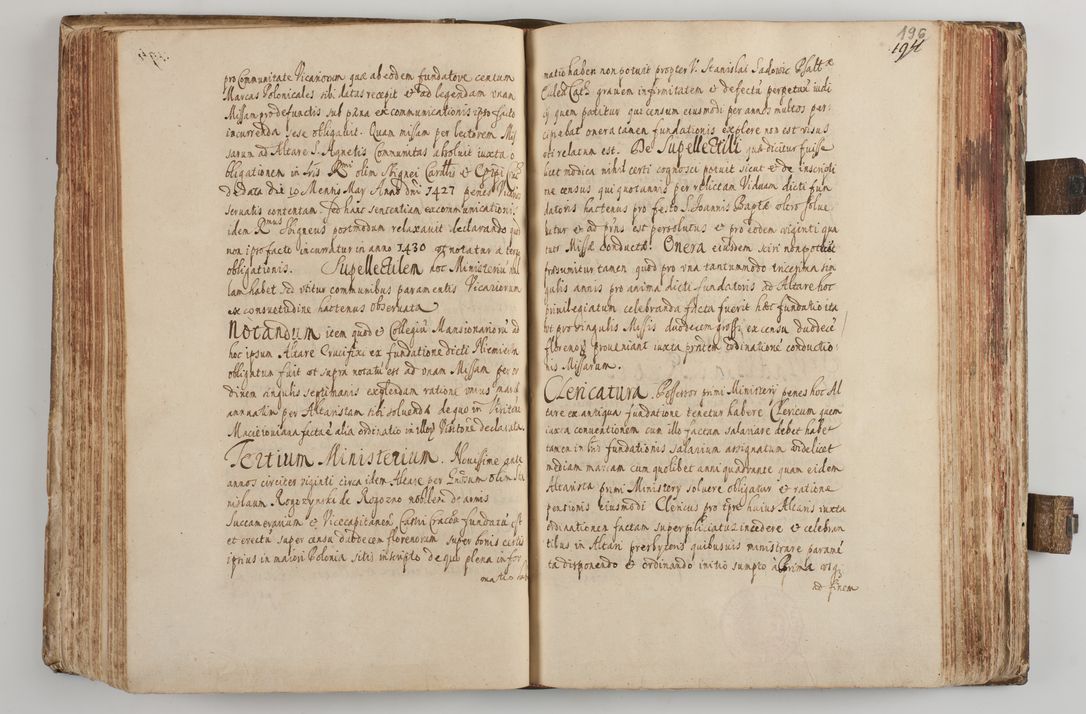 pro Communitate Vicariorum quæ ab eodem fundatore centum
Marcas Polonicales sibi datas recepit et ad legendam unam
Missam pro defunctis sub pæna excommunicationis ipso facto
incurrenda sese obligavit. Quam missam per lectorem Mis
sarum ad Altare S. Agnetis Communitas absolvit iuxta o
bligationem in lris Rmi olim Sbignei Cardlis et Epi
de data die 10 Mensis May Anno dni 1427 penes Vicarios
servatis contentam. Sed hanc sententiam excommunicationis
idem Rmus Sbigneus postmodum relaxavit declarando quod
non ipso facto incuratur in anno 1430 notatur a tergo
obligationis. Supellectilem hoc Ministeriu nul
lam habet sed utitur communibus paramentis Vicariorum
ex consuetudine hactenus observata
Notandum item quod et Collegiu Mansionarioru ad
hoc ipsum Altare Crucifixi ex fundatione dicti
obligatum fuit ut supra notatu est ad unam Missam per or
dinem singulis septimanis explendam ratione unius
annuatim per Altaristam sibi solvenda de quo in
Macieioviana facta e alia ordinatio in illoru Visitone declarata.
Tertium Ministerium. Novissime ante
annos circiter viginti circa idem Altare per Gnosum olim Sta
nislaum Rogozynski de Rogozno nobilem de armis
Succamerarium et Vicecapitaneu Castri Cracou fundatu est
et erectu super censu duodecem florenorum super bonis certis
ipsius in maiori Polonia sitis inscripto de quo plena infor
matio
196
matio haberi non potuit propter V. Stanislai Sadowic Psaltæ
Eccles Cath gravem infirmitatem et defectu perpetuu iudi
cij quem patitur qui censum eiusmodi per annos multos per
cipiebat onera tamen fundationis explere non est visus
uti relatum est. De Supellectili quæ dicitur fuisse
licet modica nihil certi cognosci potuit sicut et de inscripti
ne census qui quotannis per relictam Viduam dicti fun
datoris hactenus pro festo S. Joannis Baptæ ultro solve
batur et ad pns est persolutus et pro eodem viginti qua
tuor Missæ conductæ. Onera eiusdem sciri non potuit
præsumitur tamen quod pro una tantummodo
gulis annis pro anima dicti fundatoris ad Altare hoc
privilegiatum celebranda facta fuerit hæc fundatio ita
ut pro singulis Missis duodecem grossi ex censu duodece
florenoru proveniant iuxta pntem ordinatione conductio
nis Missarum.
Clericatura. Possessor primi Ministerij penes hoc Al
tare ex antiqua fundatione tenetur habere Clericum quem
iuxta conventionem cum illo factam salariare debet habet
tamen in lris fundationis salarium assignatum videlicet
mediam marcam cum quolibet anni quadrante quam eidem
Altarista primi Ministerij solvere obligatur et ratione
pentionis eiusmodi Clericus pro tpre huius Altaris iuxta
ordinationem factam superpiliciatus incedere et celebran
tibus in Altari præsbyteris quibusvis ministrare parame
ta disponendo et ordinando initio sumpto a prima
ad finem